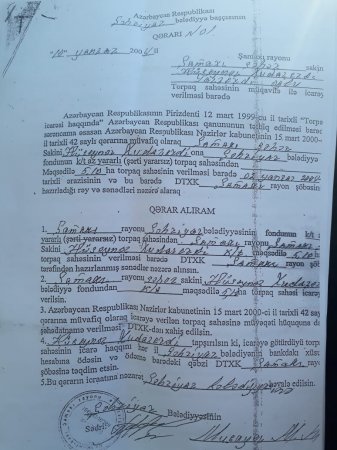 Azərbaycan Respublikası
Şəhriyar bələdiyyə başçısının
QƏRARI №01
"10" yanvar 2004 il
Şamaxı rayonu
Şamaxı şəhər sakin
Hüseynov Xudaverdi
Torpaq sahəsinin müqavilə ilə icarəyə
verilməsi barədə
Azərbaycan Respublikasının Pirizdenti 12 mart 1999-cu il tarixli "Torpaq
icarəsi haqqında" Azərbaycan Respublikası qanununun tətbiq edilməsi barədə
sərəncama əsasən Azərbaycan Respublikası Nazirlər kabunetinin 15 mart 2000-
il tarixli 42 saylı qərarına müvafiq olaraq Şamaxı şəhər
Sakini Hüseynov Xudaverdi ona Şəhriyar bələdiyyə
fondunun k/t ə/yararlı (şərti yararsız) torpaq sahəsindən
Məqsədilə 5,10 ha torpaq sahəsinin verilməsi barədə 02 yanvar 2004
tarixli ərazisinin və bu barədə DTXK Şamaxı rayon şöbəsinin
hazırladığı rəy və sənədləri nəzərə alaraq
QƏRAR ALIRAM
1. Şamaxı rayonu Şəhriyar bələdiyyəsinin fondunun k/t
yararlı (şərti yararsız) torpaq sahəsindən Şamaxı rayonu Şamaxı ş.
Sakini Hüseynov Xudaverdi k/t məqsədilə 5,10
ha torpaq sahəsinin verilməsi barədə DTXK Şamaxı rayon
tərəfindən hazırlanmış sənədlər nəzərə alınsın.
2. Şamaxı rayonu şəhər sakini Hüseynov Xudaverdi
bələdiyyə fondundan k/t məqsədilə 5,1 ha torpaq sahəsi icarəyə
verilsin.
3. Azərbaycan Respublikası Nazirlər kabunetinin 15 mart 2000-ci il tarixli 42
qərarına müvafiq olaraq icarəyə verilən torpaq sahəsinə müvəqəti hüququna dair
şəhadətnamə verilməsi DTXK-dan xahiş edilsin.
4. Hüseynov Xudaverdi tapşırılsın ki, icarəyə götürdüyü torpaq
sahəsinin icarə haqqını hər il Şəhriyar bələdiyyəsinin bankdakı xüsusi
hesabına ödəsin və ödəmə barədəki qəbzi DTXK Şamaxı rayon
şöbəsinə təqdim etsin.
5. Bu qərarın icrasına nəzarət Şəhriyar bələdiyyəsinə həvalə edilsin.
Şəhriyar Bələdiyyəsinin
Sədri